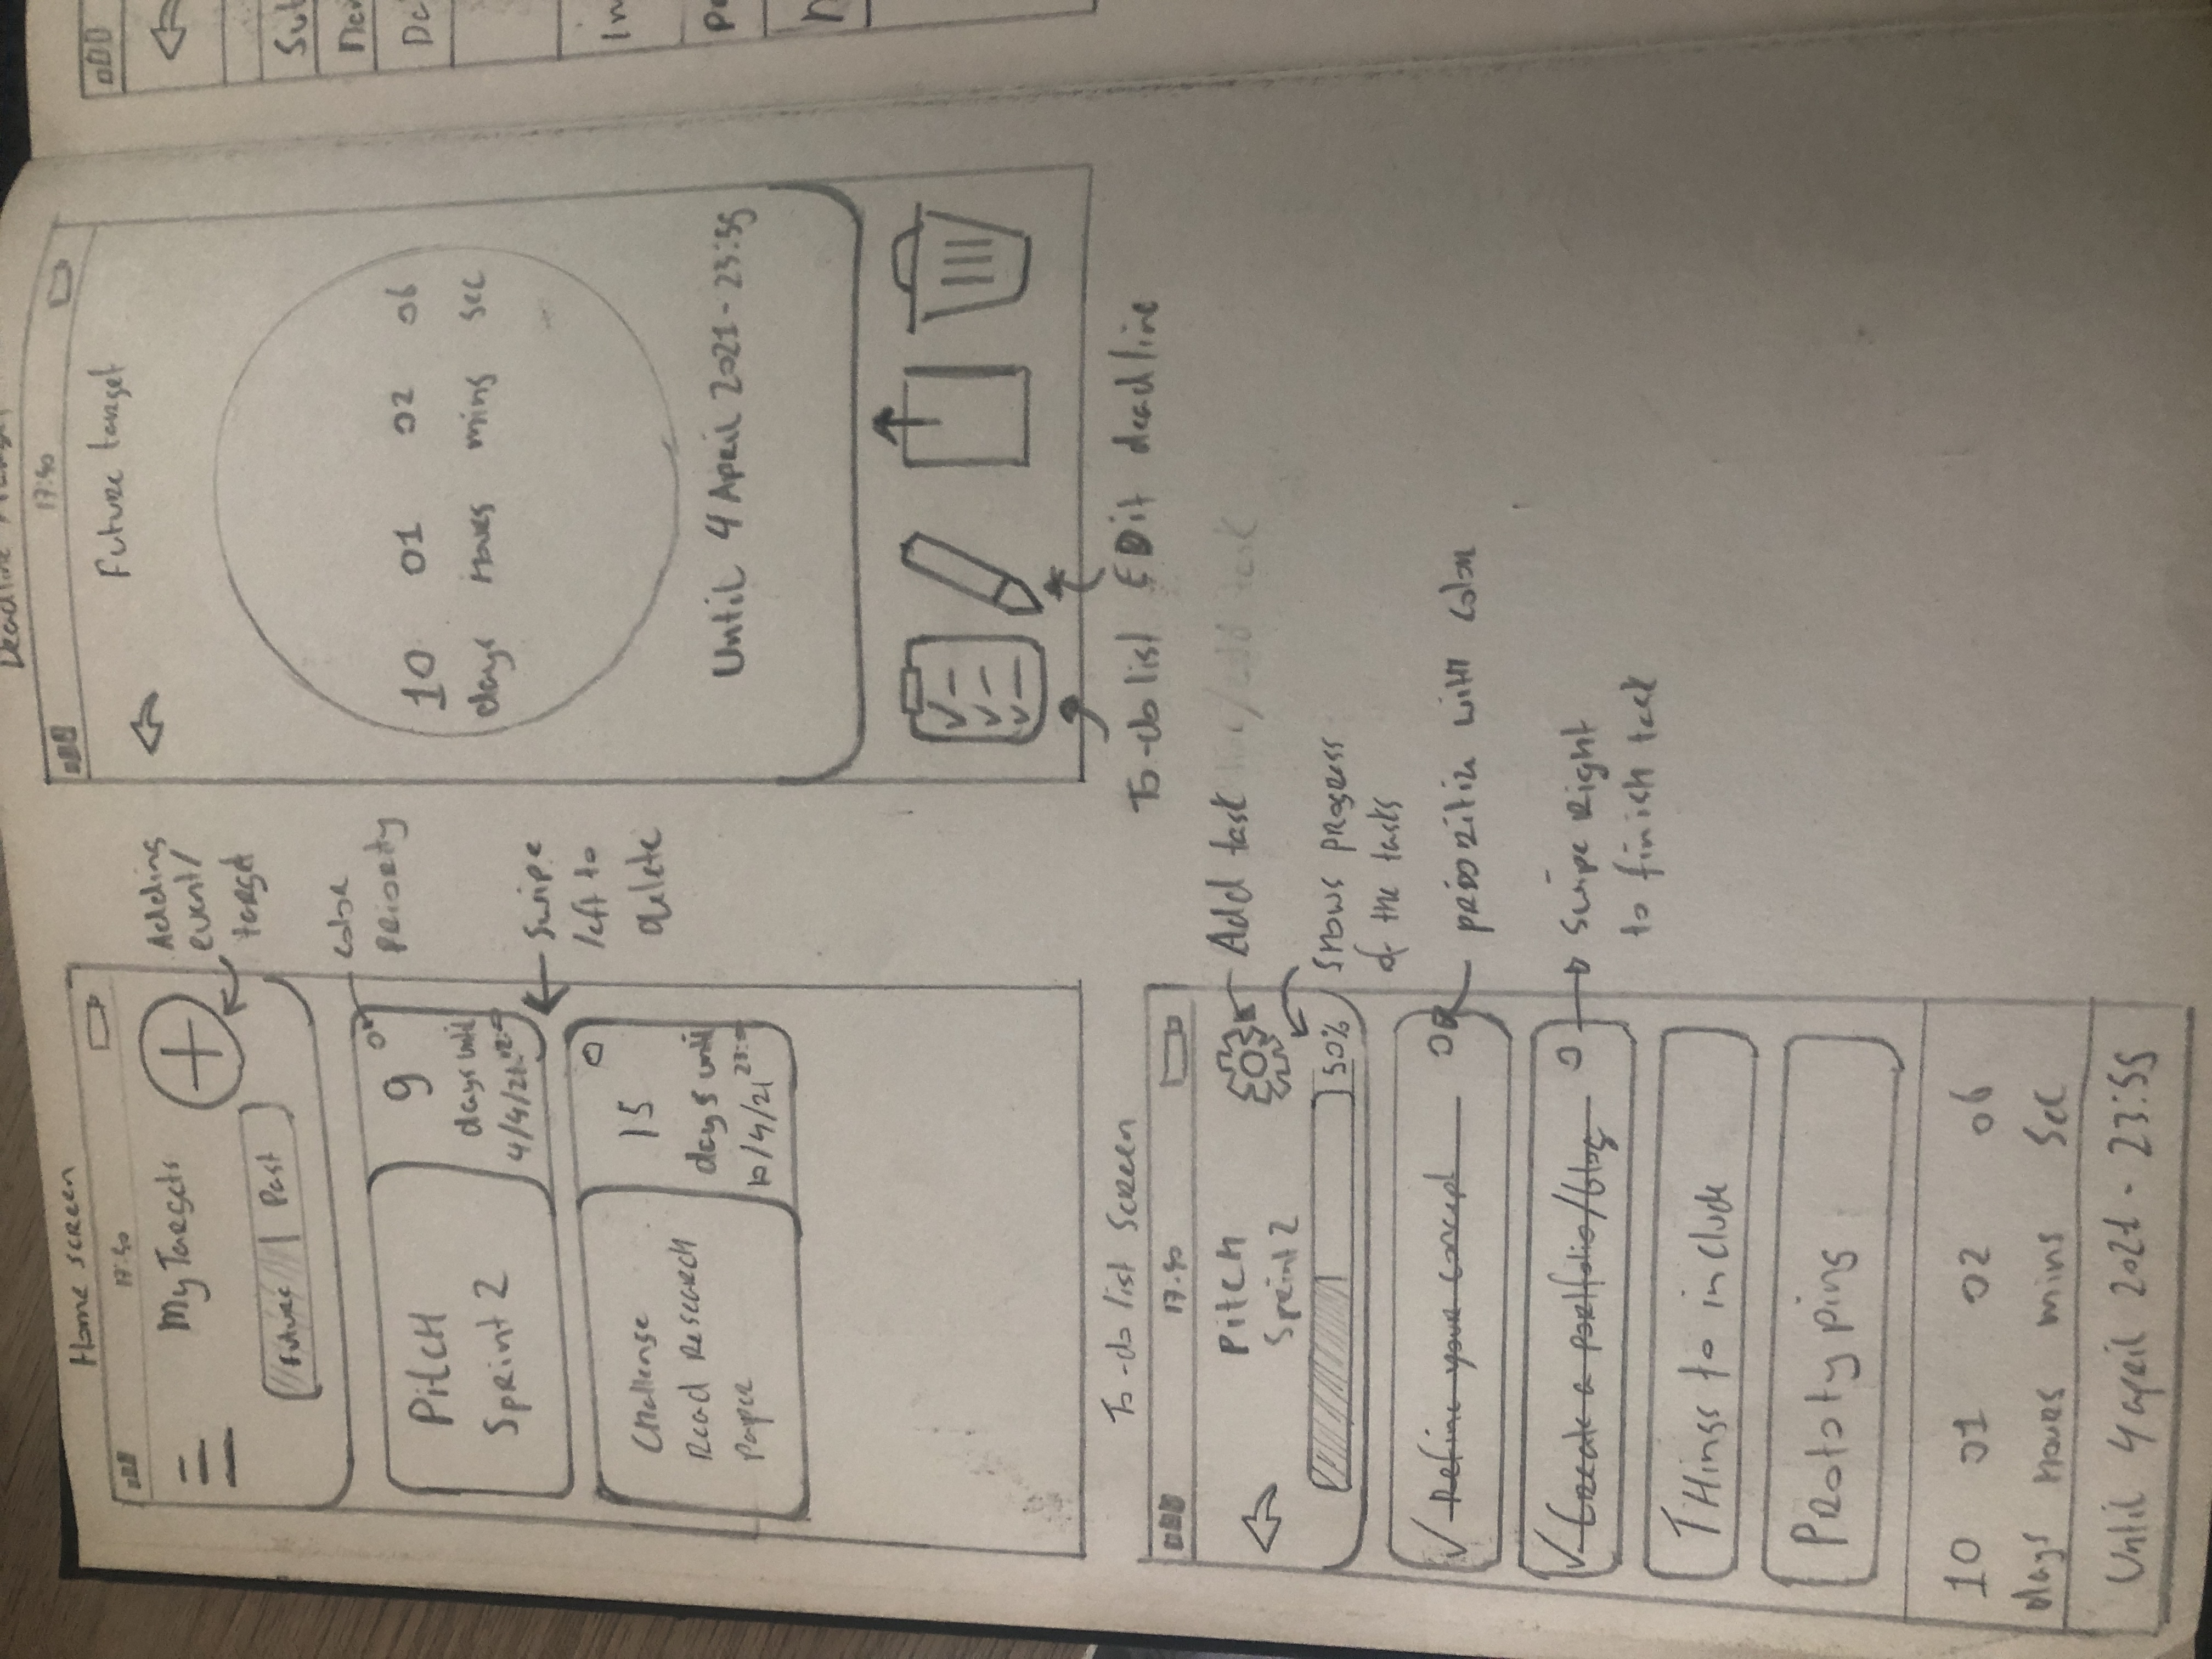 Home screen
17:40
My Targets
Future | Past
Pitch
Sprint 2
9
days until
4/4/21
Challenge
Read Research
Paper
15
days until
10/4/21
Adding
event/
target
color
priority
Swipe
left to
delete
Deadline
17:40
Future target
10 01 02 06
days hours mins sec
Until 4 April 2021 - 23:55
To-do list Edit deadline
To-do list Screen
17:40
Pitch
Sprint 2
50%
✓ Refine your concept
✓ Create a portfolio/blog
Things to include
Prototyping
10 01 02 06
days hours mins Sec
Until 4 april 2021 - 23:55
Add task
Shows progress
of the tasks
with color
Swipe Right
to finish task
Su
In